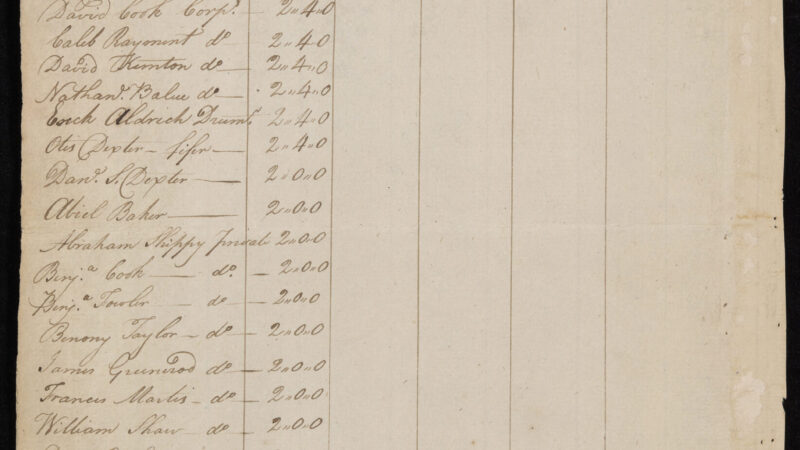 David Cook Corpl. 2,,4,,0
Caleb Rayment do 2,,4,,0
David Kimton do — 2,,4,,0
Nathanl. Balue do — 2,,4,,0
Enick Aldrich Drumr. 2,,4,,0
Otis Dexter — fifer — 2,,4,,0
Danl. S. Dexter — 2,,0,,0
Abiel Baker — 2,,0,,0
Abraham Shippy private 2,,0,,0
Benja. Cook — do. — 2,,0,,0
Benja. Fowler — do — 2,,0,,0
Benony Taylor — do — 2,,0,,0
James Greenrod do — 2,,0,,0
Francis Martis — do — 2,,0,,0
William Shaw — do — 2,,0,,0